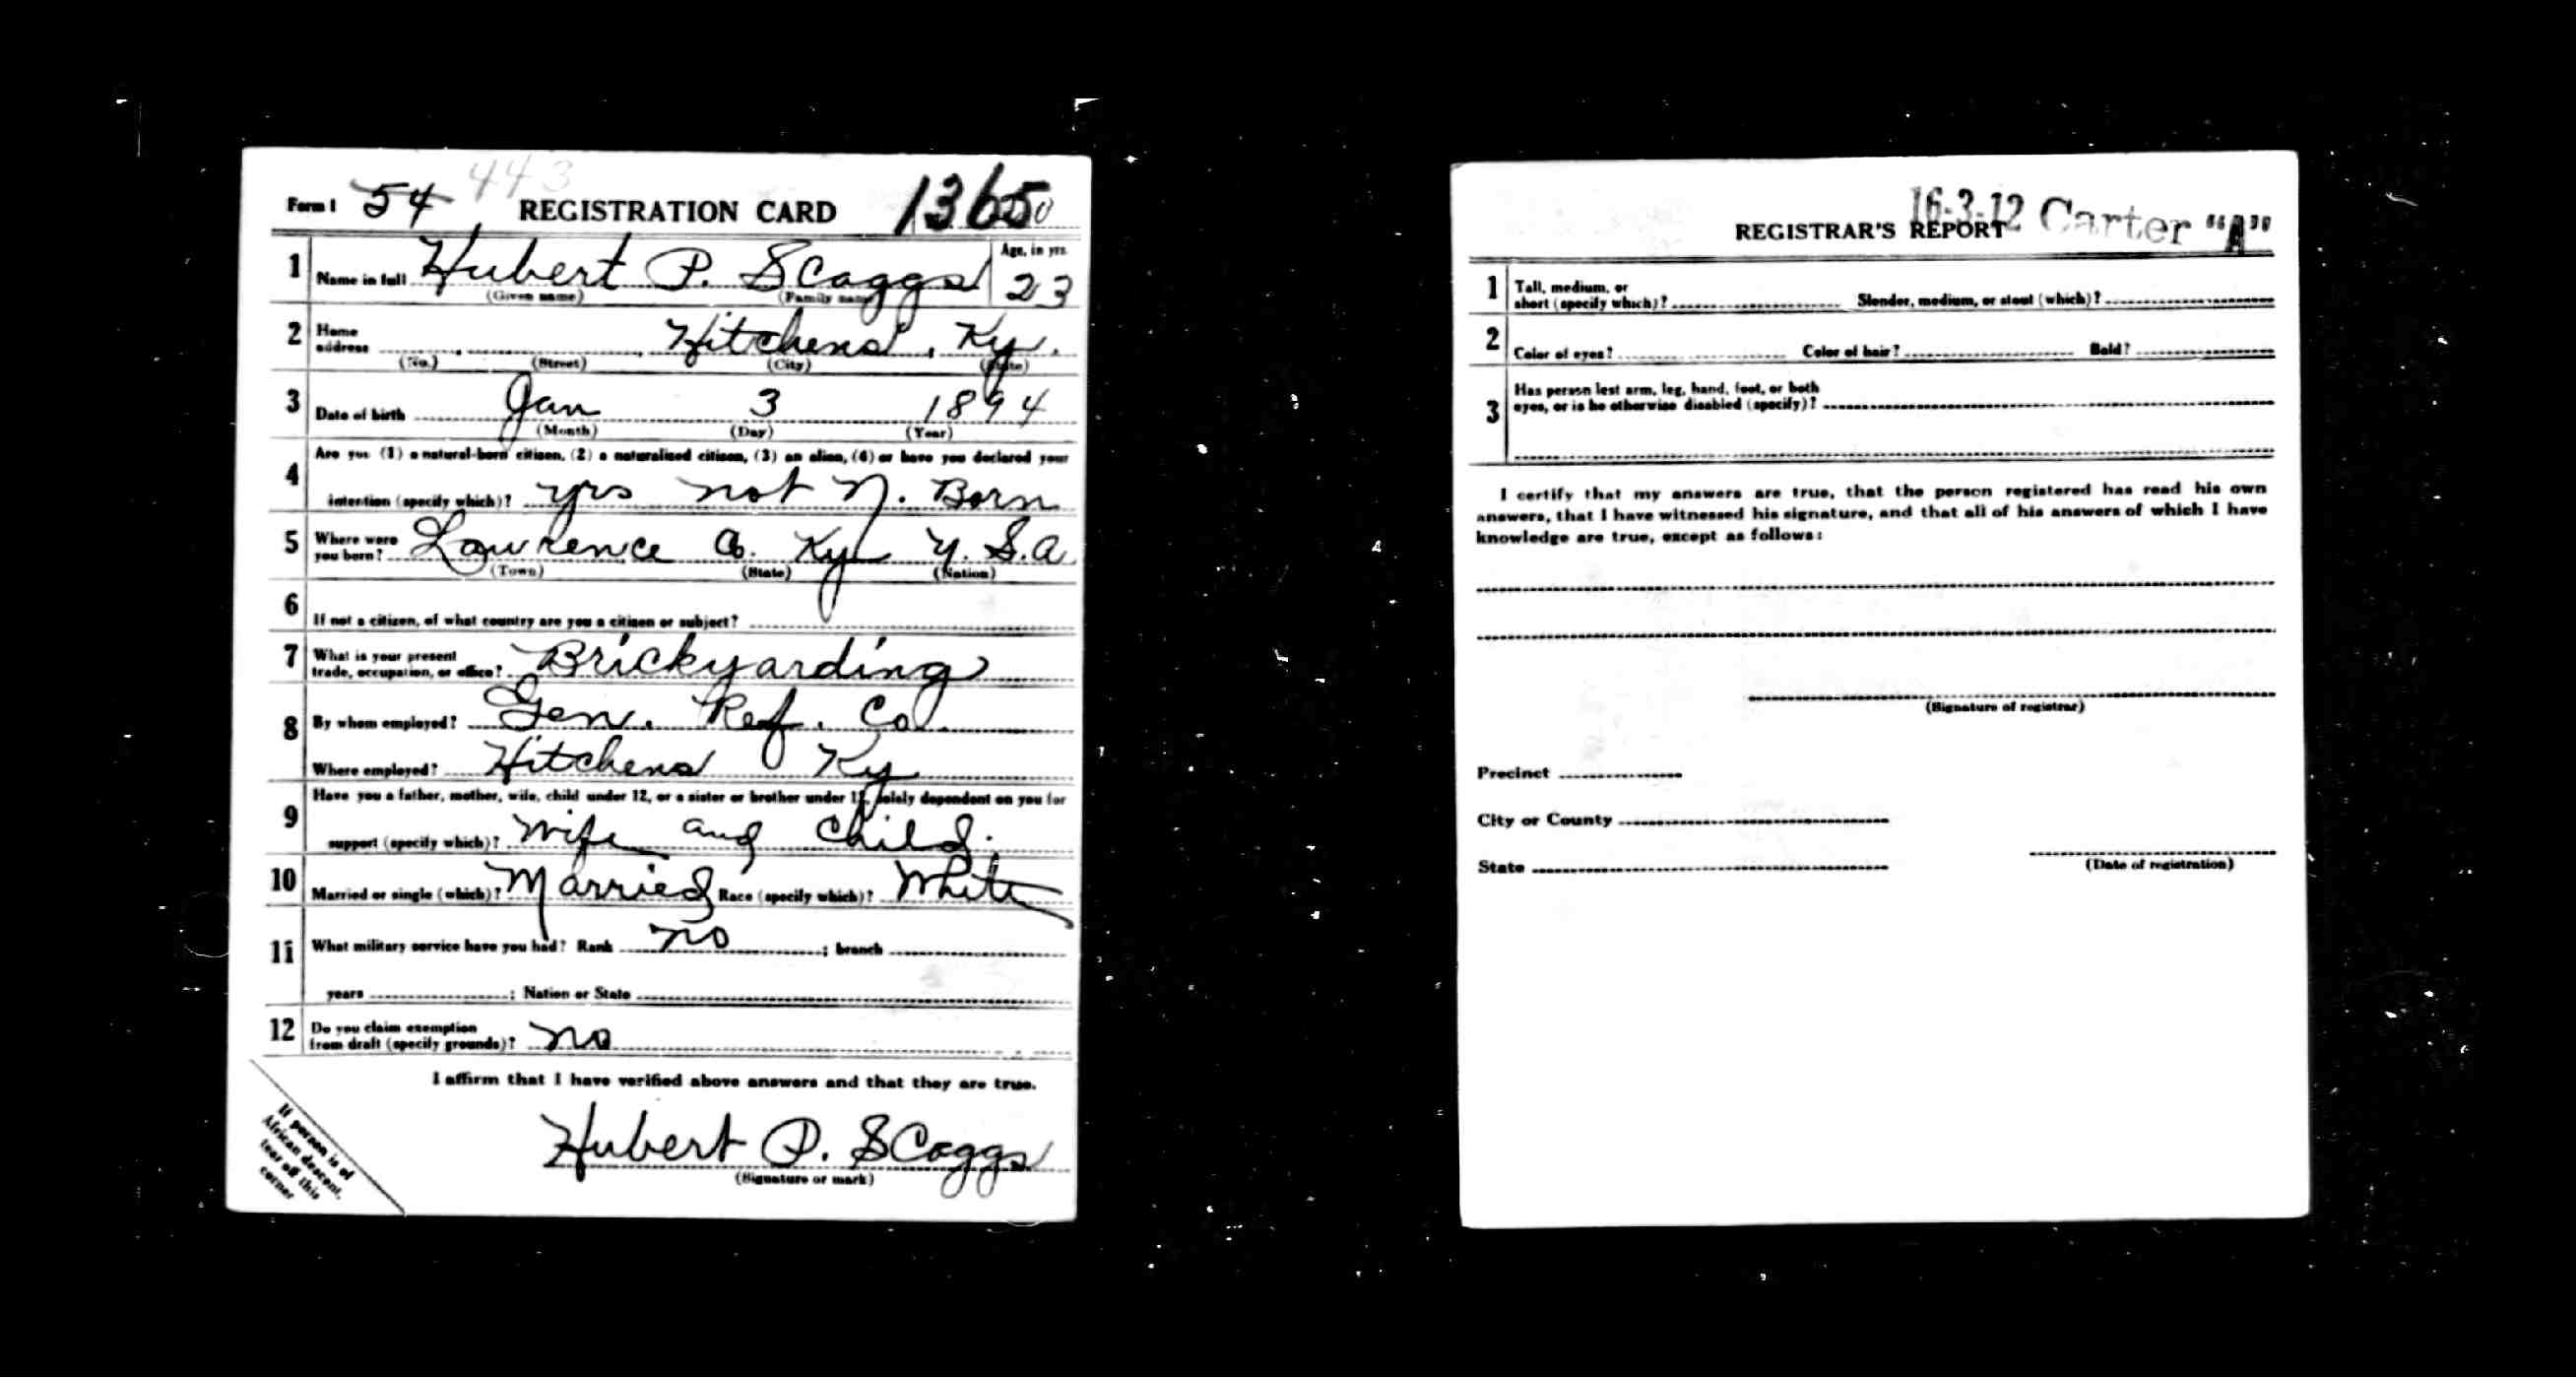 443
Form 1 54 REGISTRATION CARD 1365
1 Name in full Hubert P. Scaggs Age, in yrs. 23
(Given name) (Family name)
2 Home address Hitchens, Ky.
(No.) (Street) (City) (State)
3 Date of birth Jan 3 1894
(Month) (Day) (Year)
4 Are you (1) a natural-born citizen, (2) a naturalized citizen, (3) an alien, (4) or have you declared your
intention (specify which)? yrs not N. Born
5 Where were you born? Lawrence Co. Ky U.S.A
(Town) (State) (Nation)
6 If not a citizen, of what country are you a citizen or subject?
7 What is your present trade, occupation, or office? Brickyarding
8 By whom employed? Gen. Ref. Co.
Where employed? Hitchens Ky
9 Have you a father, mother, wife, child under 12, or a sister or brother under 12, solely dependent on you for
support (specify which)? Wife and Child.
10 Married or single (which)? Married Race (specify which)? White
11 What military service have you had? Rank no ; branch
years ; Nation or State
12 Do you claim exemption from draft (specify grounds)? no
I affirm that I have verified above answers and that they are true.
Hubert P. Scaggs
(Signature or mark)
If person is of
African descent,
tear off this
corner
16-3-12 Carter "A"
REGISTRAR'S REPORT
1 Tall, medium, or short (specify which)? Slender, medium, or stout (which)?
2 Color of eyes? Color of hair? Bald?
3 Has person lost arm, leg, hand, foot, or both
eyes, or is he otherwise disabled (specify)?
I certify that my answers are true, that the person registered has read his own
answers, that I have witnessed his signature, and that all of his answers of which I have
knowledge are true, except as follows:
(Signature of registrar)
Precinct
City or County
State
(Date of registration)